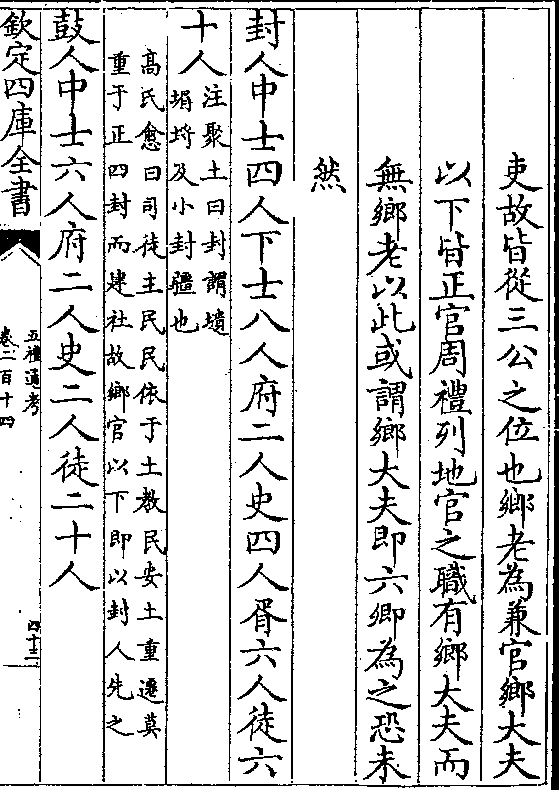 吏故皆從三公之位也鄉老為兼官鄉大夫
以下皆正官周禮列地官之職有鄉大夫而
無鄉老以此或謂鄉大夫即六卿為之恐未
然
封人中士四人下士八人府二人史四人胥六人徒六
十人
注聚土曰封謂壝
堳埓及小封疆也
髙氏愈曰司徒主民民依于土教民安土重遷莫
重于正四封而建社故鄉官以下即以封人先之
鼓人中士六人府二人史二人徒二十人
欽定四庫全書
五禮通考
卷二百十四
四十三